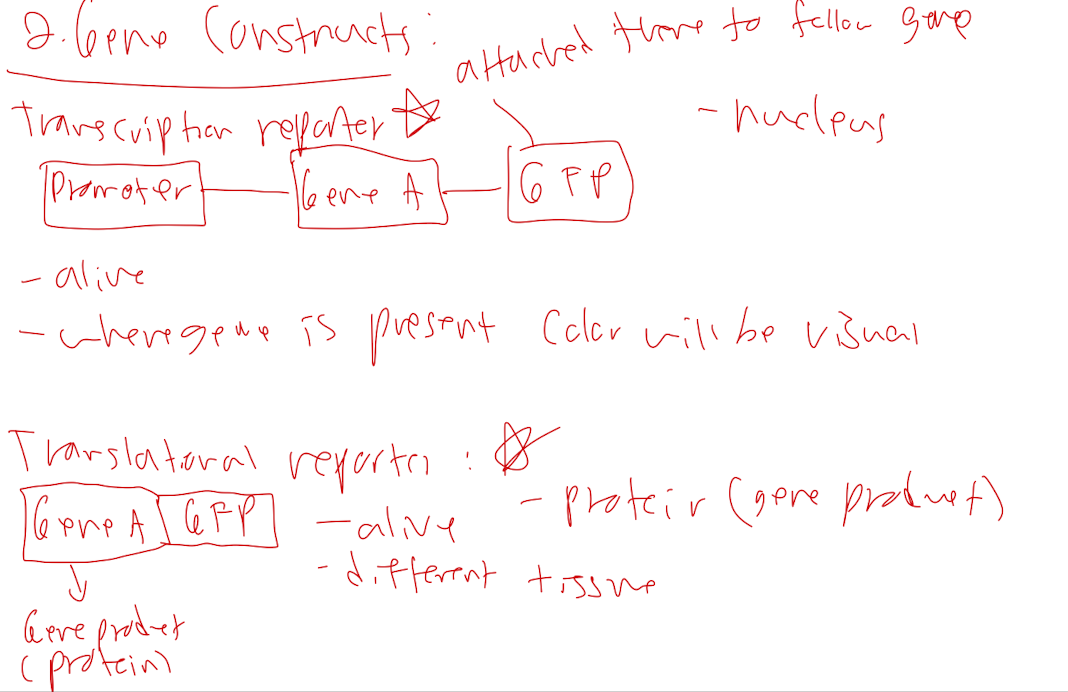 2. Gene Constructs:
attached there to follow gene
Transcription reporter
- nucleus
Promoter Gene A GFP
- alive
- where gene is present Color will be visual
Translational reporter:
Gene A GFP
- alive
- protein (gene product)
- different tissue
Gene product
(protein)